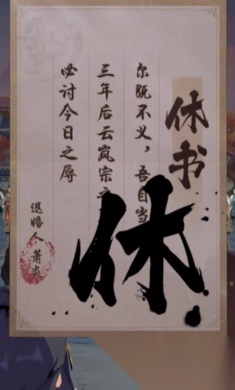 休书
尔既不义，吾自当
三年后云岚宗之
必讨今日之辱
退婚人 萧炎
休